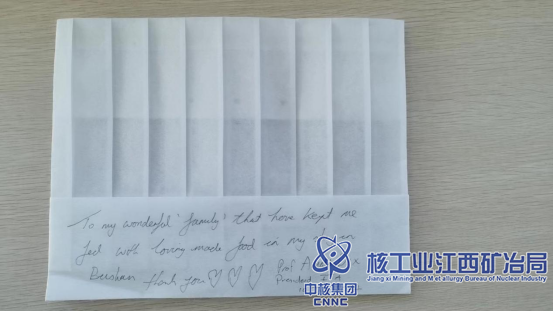 To my wonderful 'family' that have kept me
fed with loving made food in my
thank you ♡ ♡ ♡ Prof
President
核工业江西矿冶局
Jiang xi Mining and Metallurgy Bureau of Nuclear Industry
中核集团
CNNC